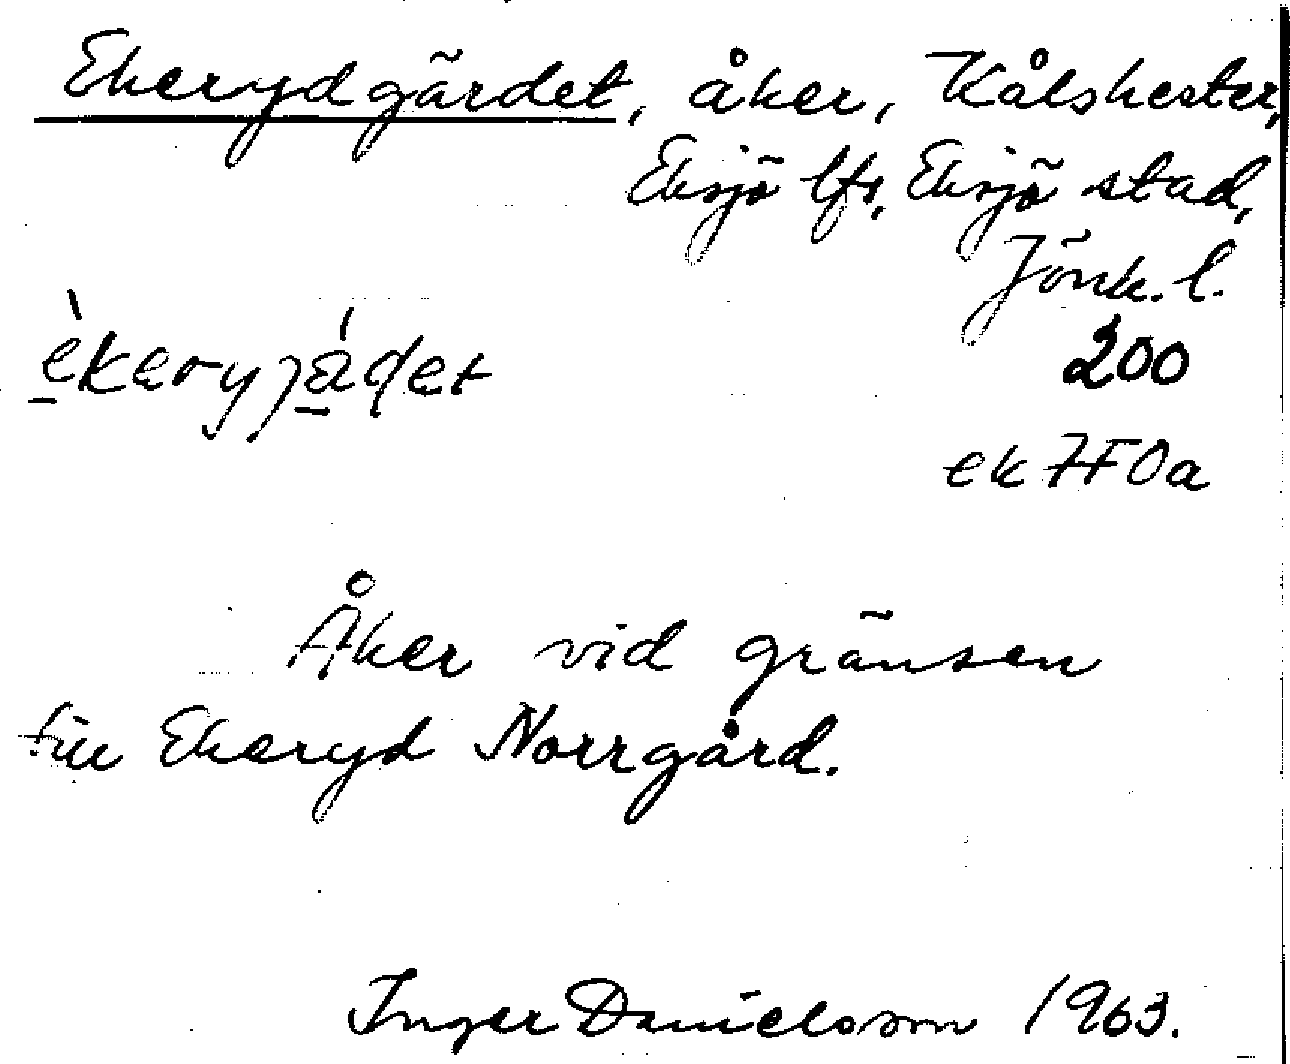 Ekerydgärdet, åker, Kålshester,
Eksjö lfs, Eksjö stad,
Jönk. l.
èkeryjádet
200
ek 7F0a
Åker vid gränsen
till Ekeryd Norrgård.
Inger Danielsson 1963.